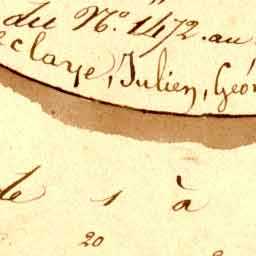 du No. 1472. au
eclaye, Julien, Géo
de 1 à
20